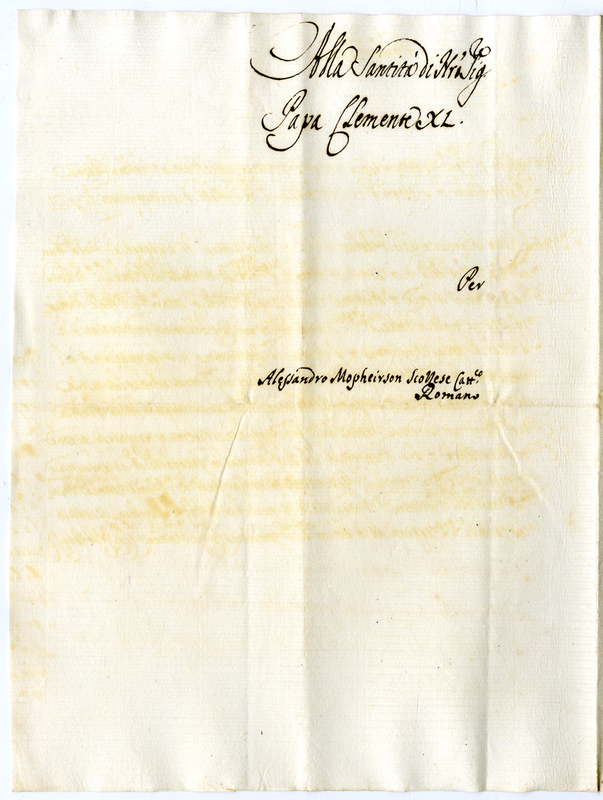 Alla Santità di Nr̃o Sig
Papa Clemente XI.
Per
Alessandro Mopheirson Scozzese Catt.co
Romano